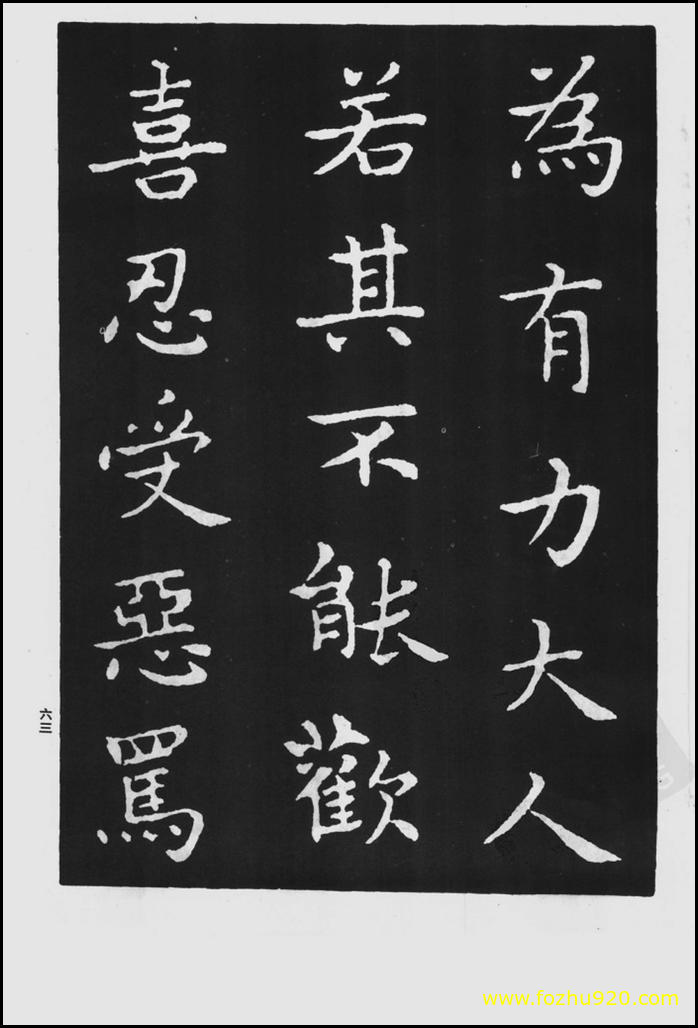 為有力大人
若其不能歡
喜忍受惡罵
六三
www.fozhu920.com